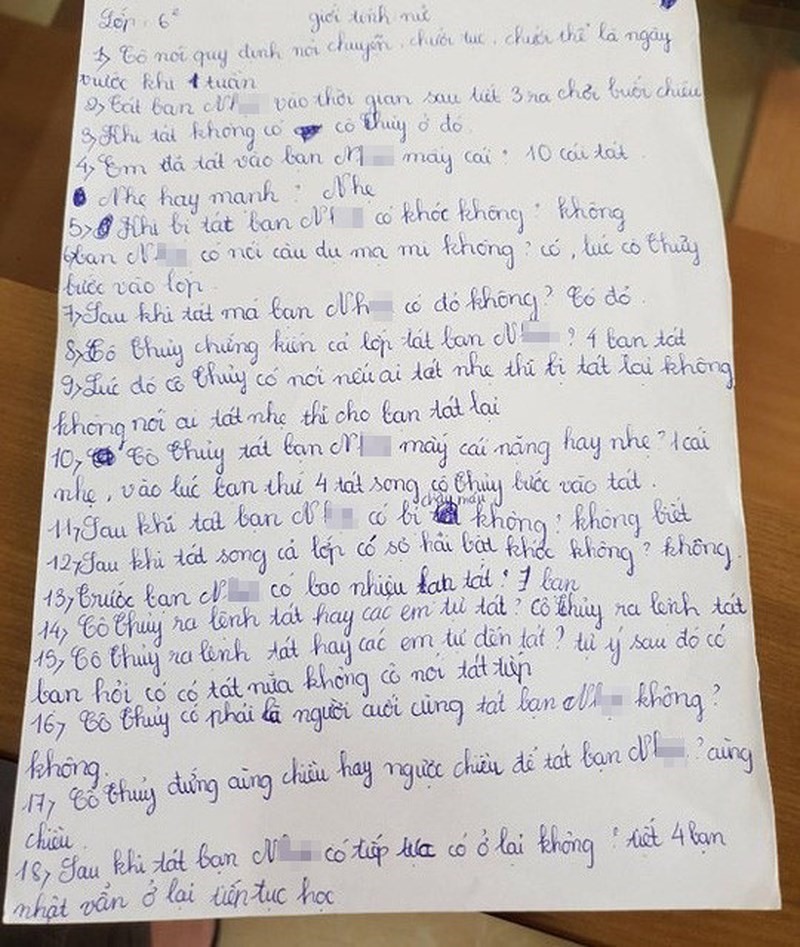 Lớp: 6² giới tính nữ
1) Cô nói quy định nói chuyện, chưởi tục, chưởi thề là ngày
trước khi 1 tuần
2) Tát bạn Nh vào thời gian sau tiết 3 ra chơi buổi chiều
3) Khi tát không có cô Thủy ở đó.
4) Em đã tát vào bạn Nh mấy cái: 10 cái tát.
Nhẹ hay mạnh: Nhẹ
5) Khi bị tát bạn Nh có khóc không? không
6) bạn Nh có nói câu dụ mạ mi không? có, lúc cô Thủy
bước vào lớp.
7) Sau khi tát má bạn Nh có đỏ không? Có đỏ.
8) Cô Thủy chứng kiến cả lớp tát bạn N ? 4 bạn tát
9) Lúc đó cô Thủy có nói nếu ai tát nhẹ thì bị tát lại không
không nói ai tát nhẹ thì cho bạn tát lại
10) Cô Thủy tát bạn Nh mấy cái nặng hay nhẹ? 1 cái
nhẹ, vào lúc bạn thứ 4 tát song cô Thủy bước vào tát.
11) Sau khi tát bạn N có bị chảy máu không? không biết
12) Sau khi tát song cả lớp có sợ hãi bật khóc không? không.
13) Trước bạn N có bao nhiêu bạn tát? 7 bạn
14) Cô Thủy ra lệnh tát hay các em tự tát? Cô Thủy ra lệnh tát
15) Cô Thủy ra lệnh tát hay các em tự đến tát? tự ý sau đó có
bạn hỏi cô có tát nữa không cô nói tát tiếp
16) Cô Thủy có phải là người cuối cùng tát bạn Nh không?
không.
17) Cô Thủy đứng cùng chiều hay ngược chiều để tát bạn Nh ? cùng
chiều.
18) Sau khi tát bạn N có tiếp tục có ở lại không? tiết 4 bạn
nhật vẫn ở lại tiếp tục học